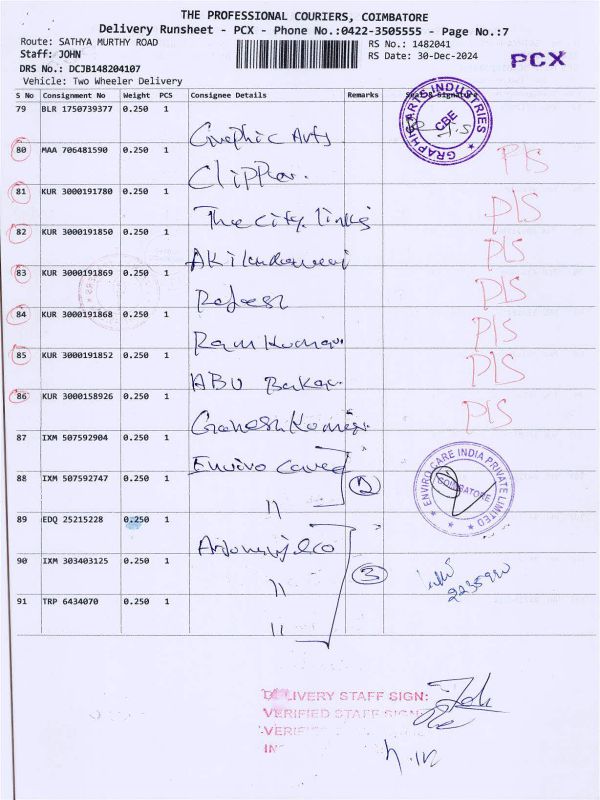 THE PROFESSIONAL COURIERS, COIMBATORE
Delivery Runsheet - PCX - Phone No.:0422-3505555 - Page No.:7
Route: SATHYA MURTHY ROAD
RS No.: 1482041
Staff: JOHN
RS Date: 30-Dec-2024
PCX
DRS No.: DCJB148204107
Vehicle: Two Wheeler Delivery
S No Consignment No Weight PCS Consignee Details Remarks Seal & Signature
79 BLR 1750739377 0.250 1 Graphic Arts
GRAPHIC ARTS INDUSTRIES CBE
80 MAA 706481590 0.250 1 Clipper. P/S
81 KUR 3000191780 0.250 1 The city links P/S
82 KUR 3000191850 0.250 1 P/S
83 KUR 3000191869 0.250 1 Rajesh P/S
84 KUR 3000191868 0.250 1 Ram Kumar. P/S
85 KUR 3000191852 0.250 1 ABU Bakar. P/S
86 KUR 3000158926 0.250 1 Ganesh Kumar. P/S
87 IXM 507592904 0.250 1 Enviro Care
ENVIRO CARE INDIA PRIVATE LIMITED COIMBATORE
88 IXM 507592747 0.250 1 " 2
89 EDQ 25215228 0.250 1
90 IXM 303403125 0.250 1 " 3
91 TRP 6434070 0.250 1 "
DELIVERY STAFF SIGN:
VERIFIED STAFF SIGN
VERIFIE
IN